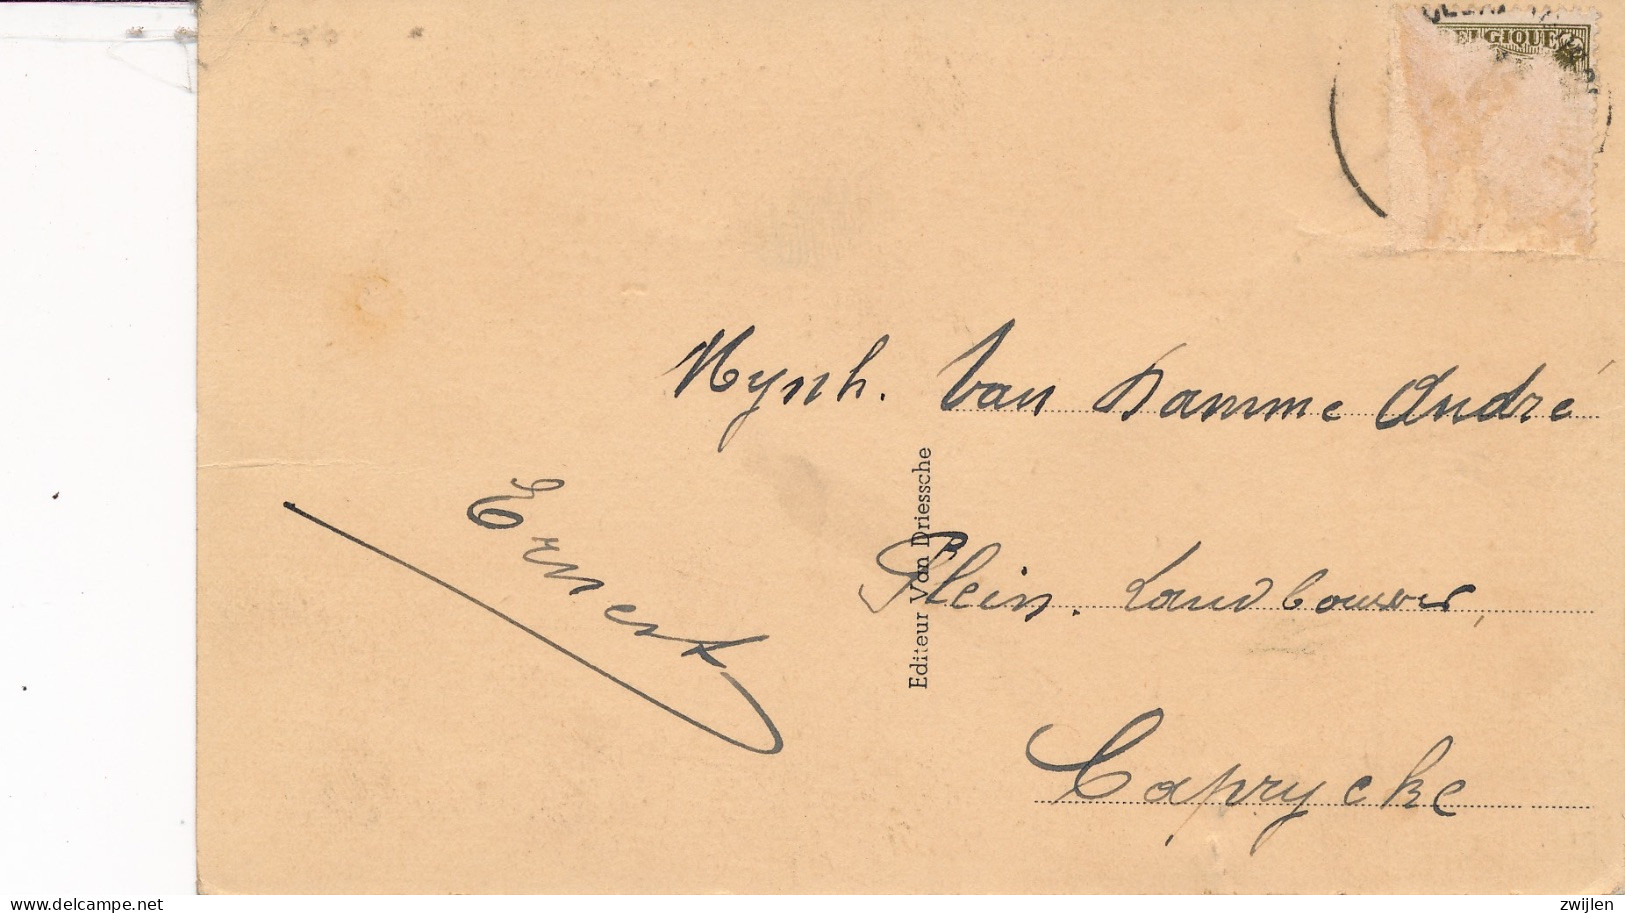 BELGIQUE
Mynh. Van Damme André
Ernest
Editeur Van Driessche
Plein. Landbouwer,
Caprycke
delcampe.net
zwijlen